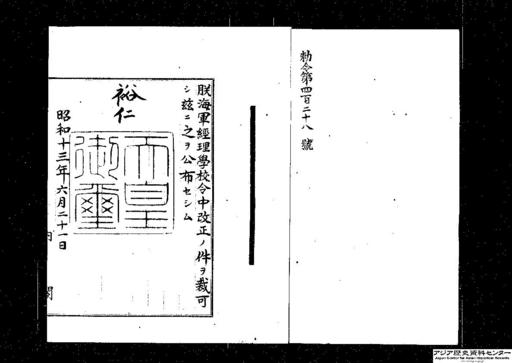 勅令第四百二十八號
朕海軍經理學校令中改正ノ件ヲ裁可
シ茲ニ之ヲ公布セシム
裕仁
天皇
御璽
昭和十三年六月二十一日
内閣
アジア歴史資料センター
Japan Center for Asian Historical Records